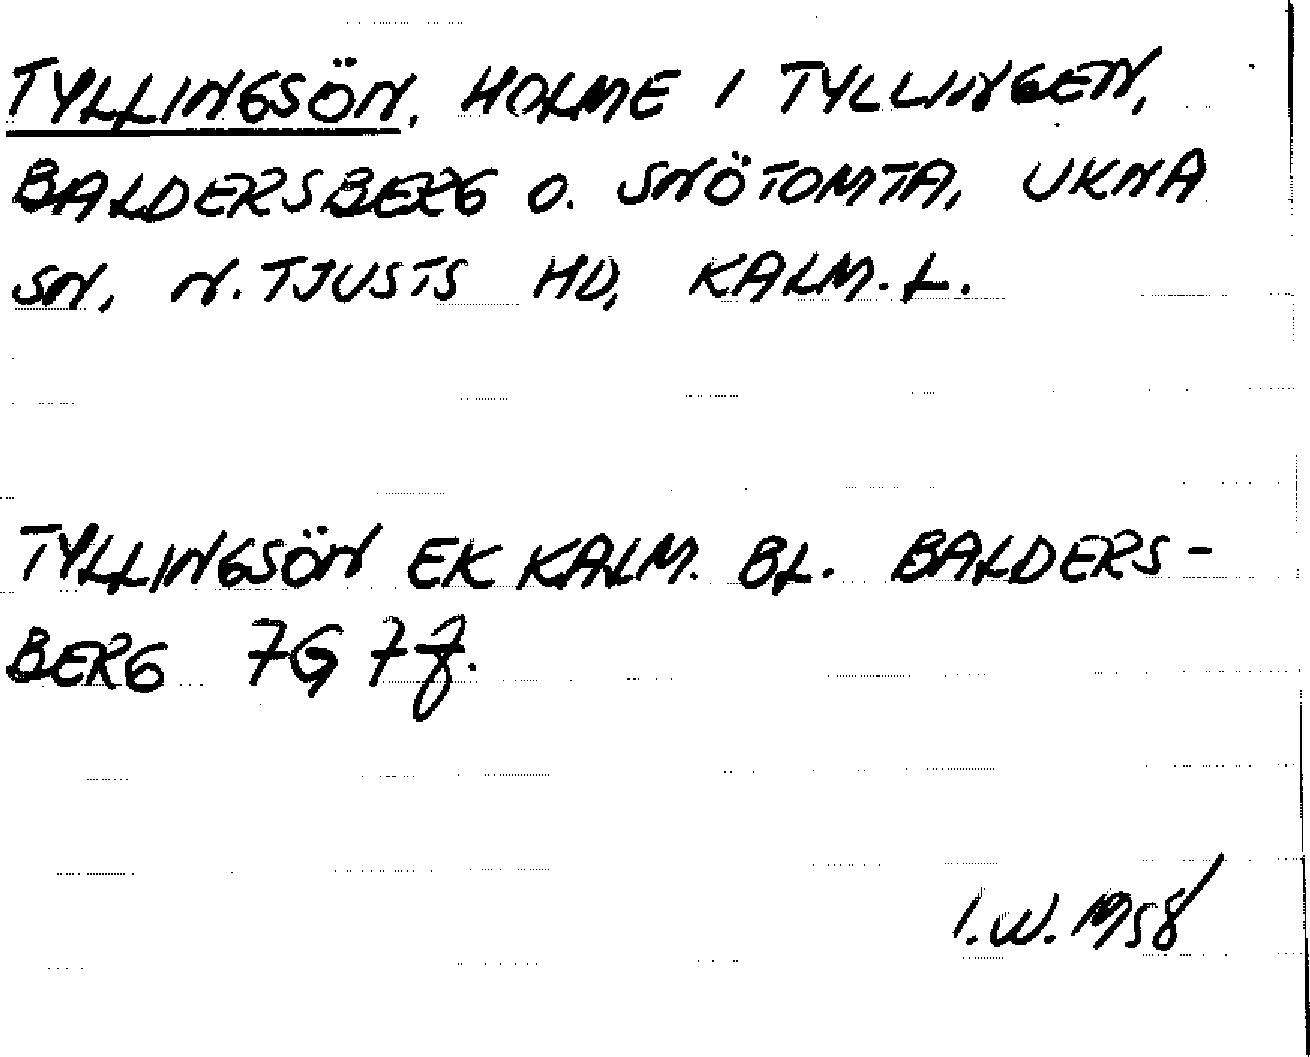 TYLLINGSÖN, HOLME I TYLLINGEN,
BALDERSBERG O. SNÖTOMTA, UKNA
SN, N. TJUSTS HD, KALM. L.
TYLLINGSÖN EK KALM. BL. BALDERS-
BERG 7G 7f.
I.W. 1958